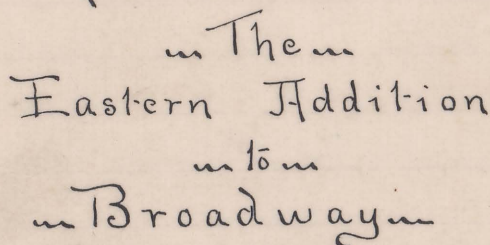 ~ The ~
Eastern Addition
~ to ~
Broadway ~